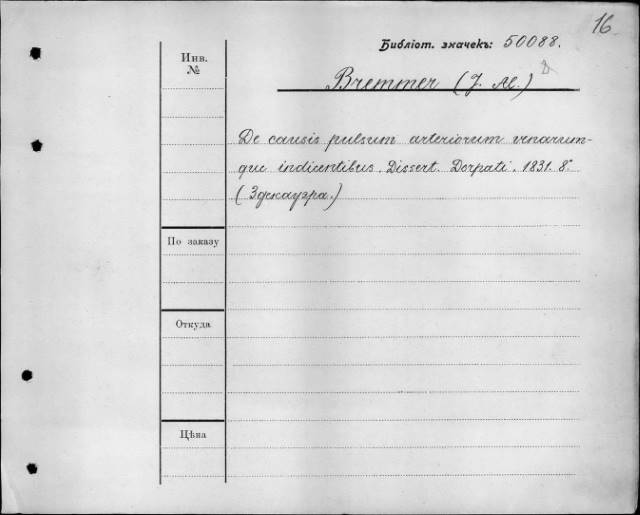 16
Библіот. значекъ: 50088.
Инв.
№
Bremmer (J. M.)
De causis pulsum arteriorum venarum-
que indicentibus. Dissert. Dorpati. 1831. 8°
(Здекауэра.)
По заказу
Откуда
Цѣна